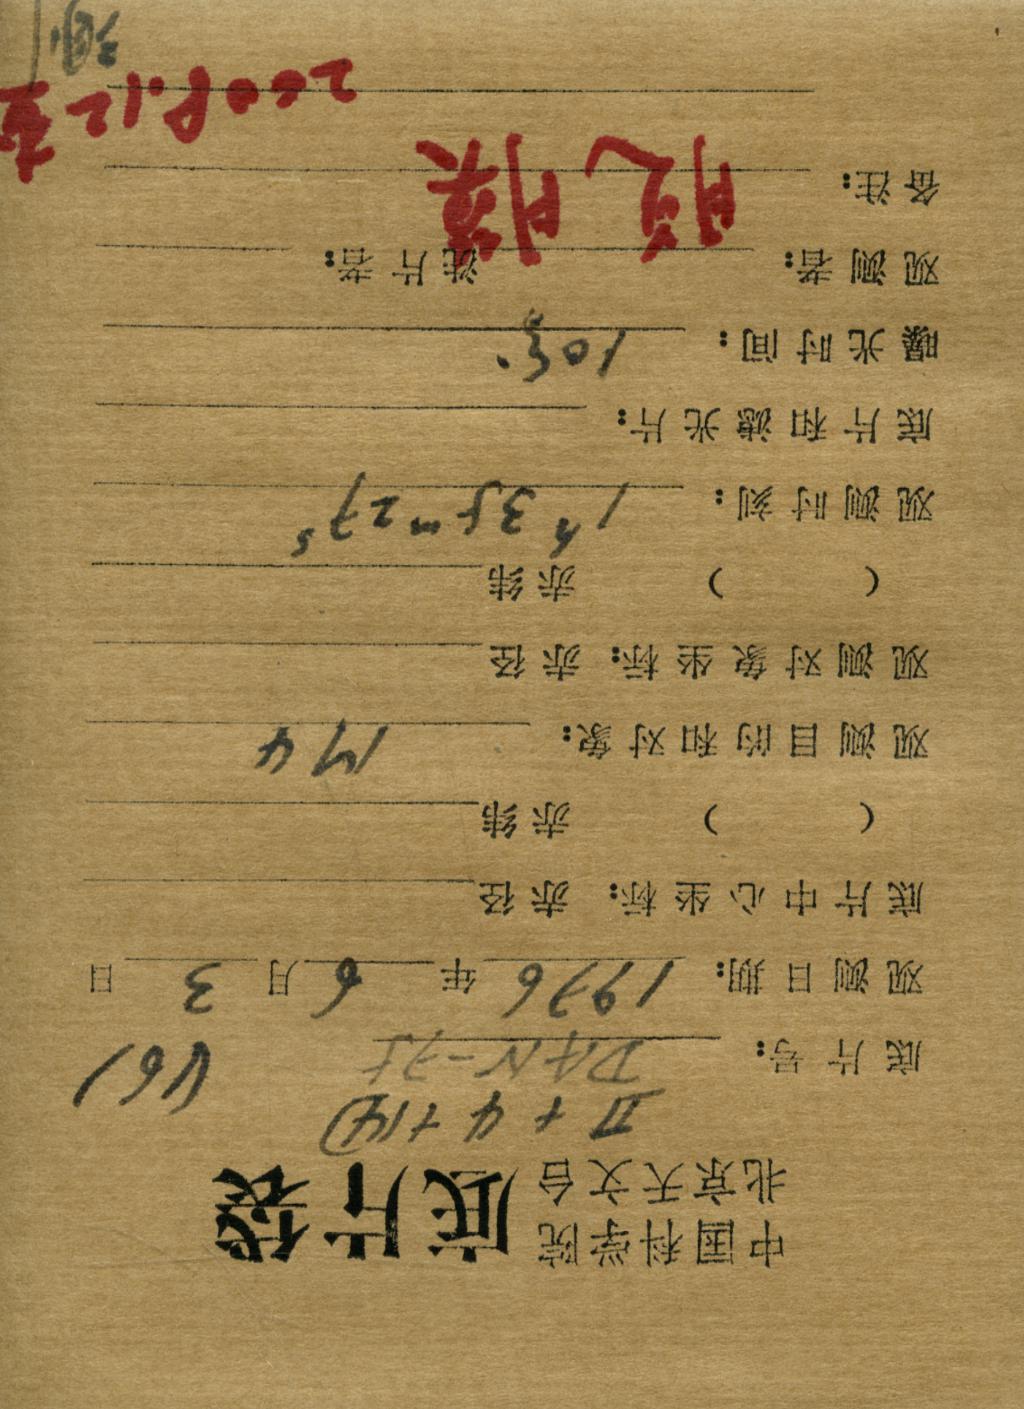 中国科学院
北京天文台 底片袋
II+4+14
底片号: (46)
观测日期: 1976 年 6 月 3 日
底片中心坐标: 赤径
( ) 赤纬
观测目的和对象: M4
观测对象坐标: 赤径
( ) 赤纬
观测时刻: 1h 35m 27s
底片和滤光片:
曝光时间: 10分.
观测者: 洗片者:
备注: 脱膜
2008.12查